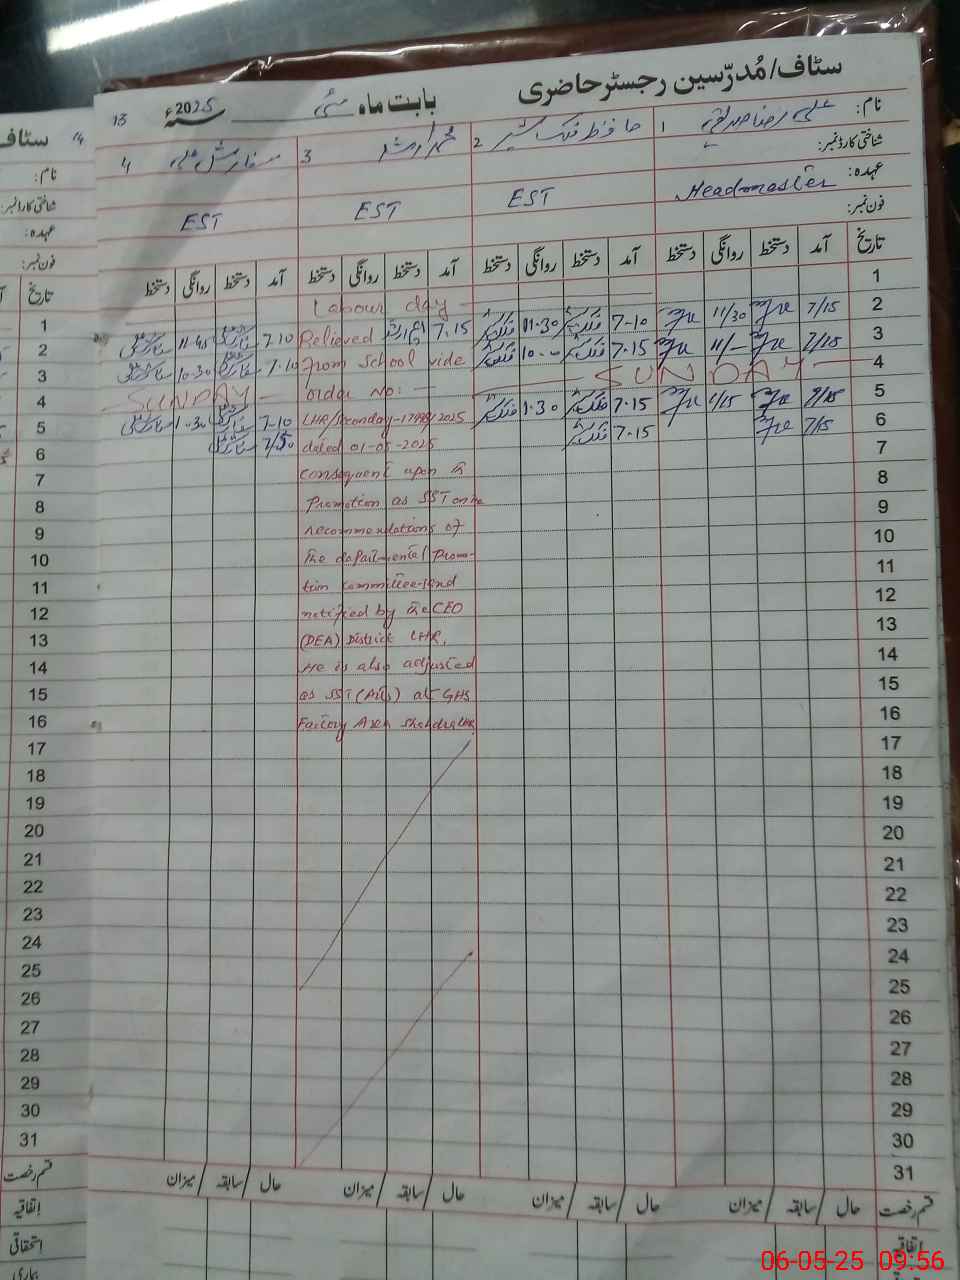 سٹاف/مُدرّسین رجسٹر حاضری
بابت ماہ مئی سنہ 2025ء
13
نام: 1 علی رضا صدیقی 2 حافظ فلک شیر 3 محمد ارشد 4 سفارش علی
شناختی کارڈ نمبر:
عہدہ: Headmaster EST EST EST
فون نمبر:
تاریخ آمد دستخط روانگی دستخط آمد دستخط روانگی دستخط آمد دستخط روانگی دستخط آمد دستخط روانگی دستخط
1 Labour day
2 7/15 11/30 7-10 11-30 7.15 7.10 11-45
3 7/15 11/- 7.15 10-00 7.10 10-30
4 SUNDAY SUNDAY
5 7/15 1/15 7.15 1.30 7-10 1-30
6 7/15 7.15 7/50
Relieved
from School vide
order No: —
dated 01-05-2025
Consequent upon the
Promotion as SST on the
recommendations of
The departmental Promo-
tion Committee and
notified by the CEO
(DEA) District LHR.
He is also adjusted
as SST (Arts) at GHS
Factory Area Shahdra LHR.
7
8
9
10
11
12
13
14
15
16
17
18
19
20
21
22
23
24
25
26
27
28
29
30
31
قسم رخصت حال سابقہ میزان حال سابقہ میزان حال سابقہ میزان حال سابقہ میزان
اتفاقیہ
14
سٹاف
نام:
شناختی کارڈ نمبر:
عہدہ:
فون نمبر:
تاریخ
1
2
3
4
5
6
7
8
9
10
11
12
13
14
15
16
17
18
19
20
21
22
23
24
25
26
27
28
29
30
31
قسم رخصت
اتفاقیہ
استحقاقی
بیماری
06-05-25 09:56